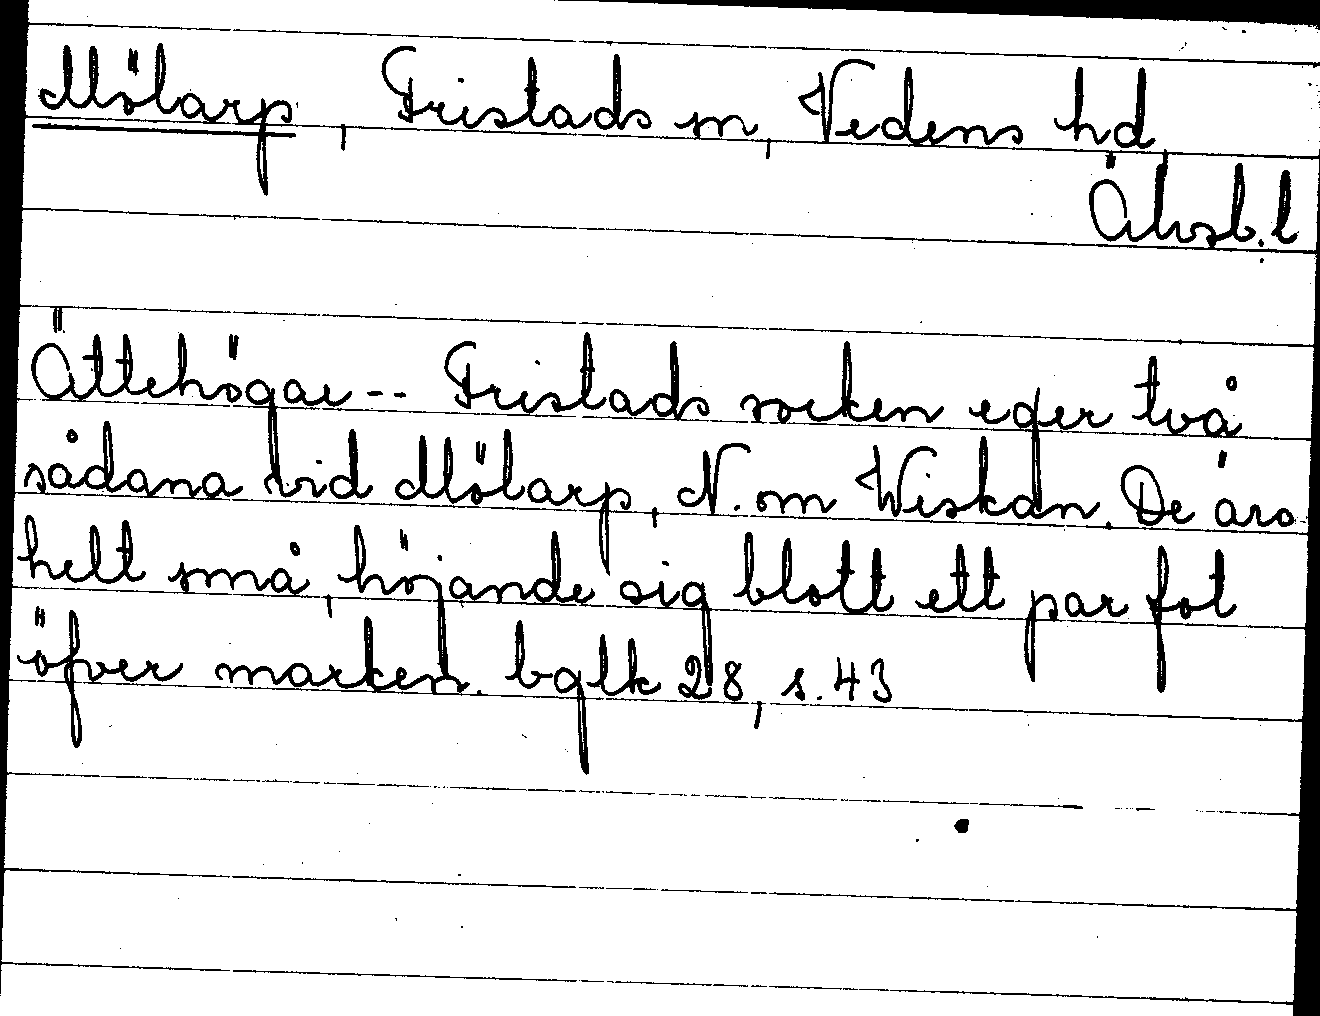 Mölarp, Fristads sn, Vedens hd,
Älvsb. l
Ättehögar -- Fristads socken eger två
sådana vid Mölarp, N. om Wiskan. De äro
helt små, höjande sig blott ett par fot
öfver marken. bglk 28, s. 43